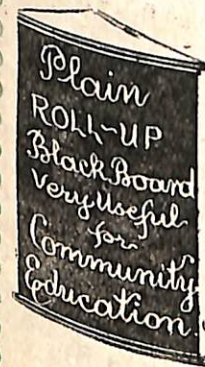 Plain
ROLL-UP
BlackBoard
Very Useful
for
Community
Education.